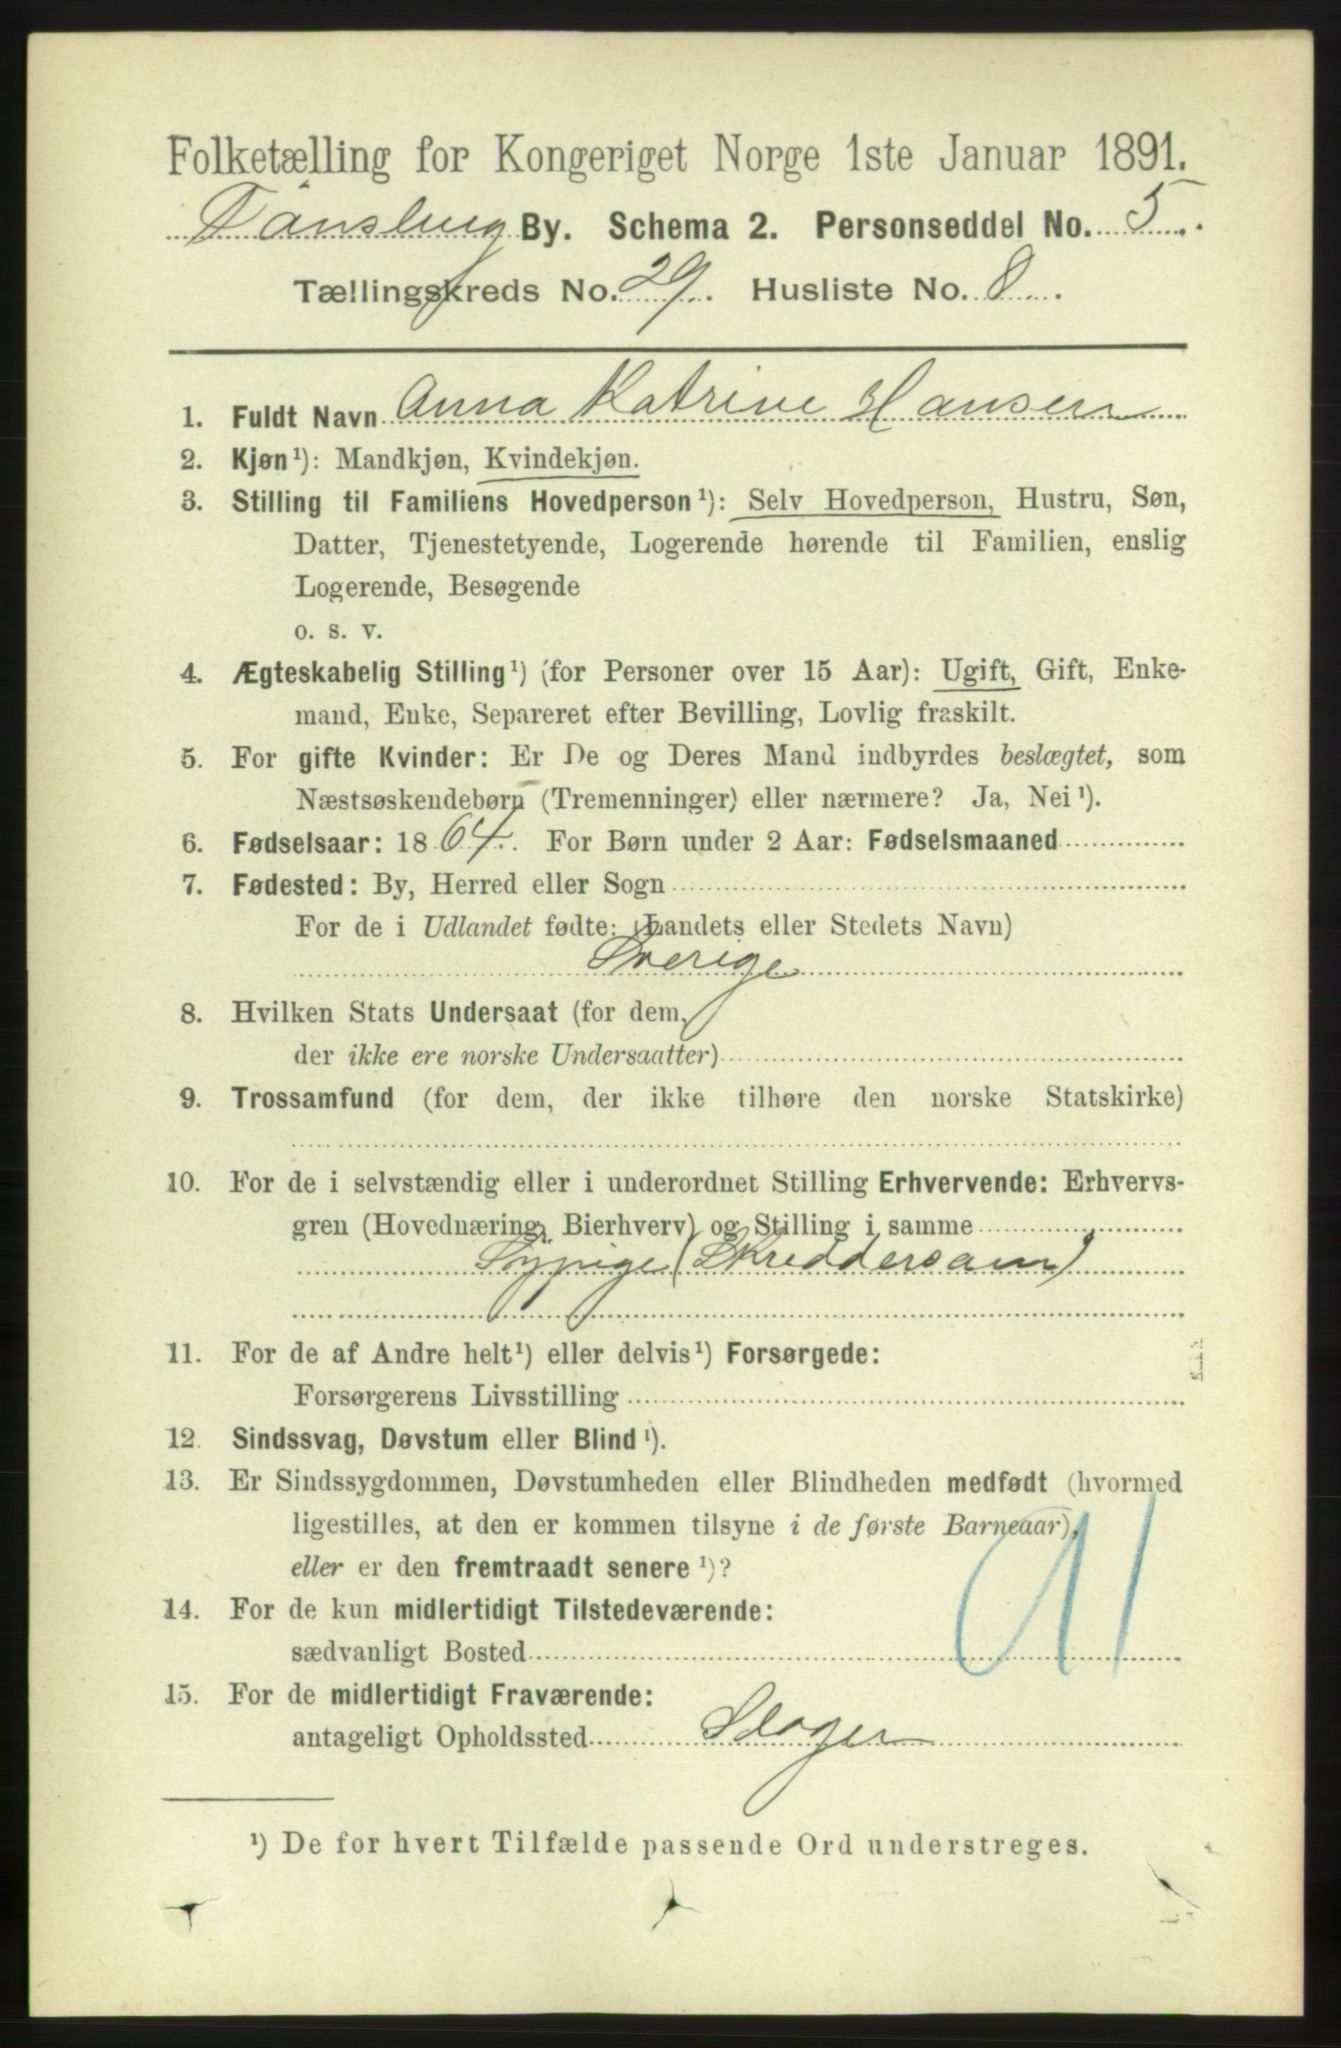 Folketælling for Kongeriget Norge 1ste Januar 1891.
Tønsberg By. Schema 2. Personseddel No. 5.
Tællingskreds No. 29. Husliste No. 8.
1. Fuldt Navn Anna Katrine Hansen
2. Kjøn¹): Mandkjøn, Kvindekjøn.
3. Stilling til Familiens Hovedperson¹): Selv Hovedperson, Hustru, Søn,
Datter, Tjenestetyende, Logerende hørende til Familien, enslig
Logerende, Besøgende
o. s. v.
4. Ægteskabelig Stilling¹) (for Personer over 15 Aar): Ugift, Gift, Enke-
mand, Enke, Separeret efter Bevilling, Lovlig fraskilt.
5. For gifte Kvinder: Er De og Deres Mand indbyrdes beslægtet, som
Næstsøskendebørn (Tremenninger) eller nærmere? Ja, Nei¹).
6. Fødselsaar: 1864. For Børn under 2 Aar: Fødselsmaaned
7. Fødested: By, Herred eller Sogn
For de i Udlandet fødte: (Landets eller Stedets Navn)
Sverige
8. Hvilken Stats Undersaat (for dem,
der ikke ere norske Undersaatter)
9. Trossamfund (for dem, der ikke tilhøre den norske Statskirke)
10. For de i selvstændig eller i underordnet Stilling Erhvervende: Erhvervs-
gren (Hovednæring, Bierhverv) og Stilling i samme
Sypige (Skreddersøm)
11. For de af Andre helt¹) eller delvis¹) Forsørgede:
Forsørgerens Livsstilling
12. Sindssvag, Døvstum eller Blind¹).
13. Er Sindssygdommen, Døvstumheden eller Blindheden medfødt (hvormed
ligestilles, at den er kommen tilsyne i de første Barneaar),
eller er den fremtraadt senere¹)?
91
14. For de kun midlertidigt Tilstedeværende:
sædvanligt Bosted
15. For de midlertidigt Fraværende:
antageligt Opholdssted
¹) De for hvert Tilfælde passende Ord understreges.